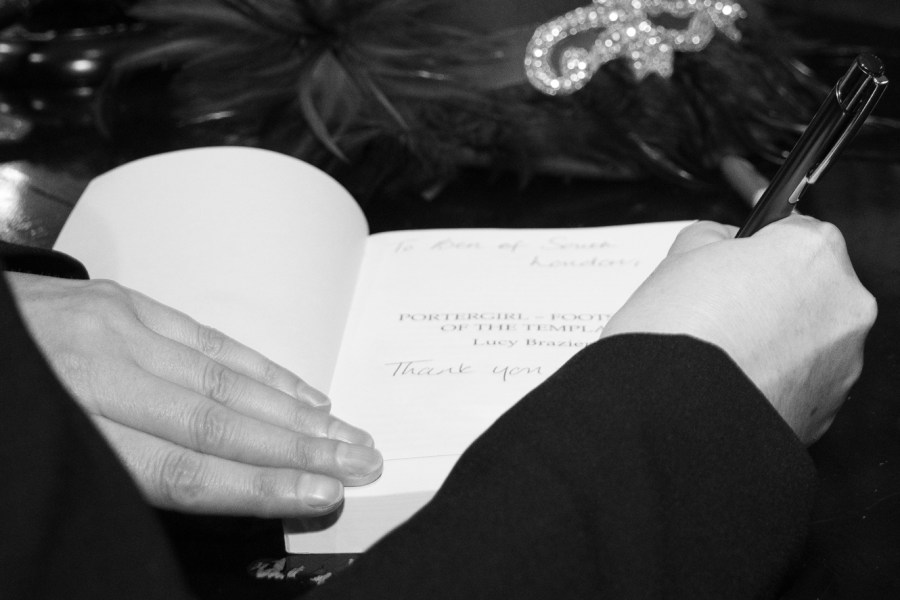 To Ben of South
London,
PORTERGIRL – FOOTS
OF THE TEMPLA
Lucy Brazier
Thank you